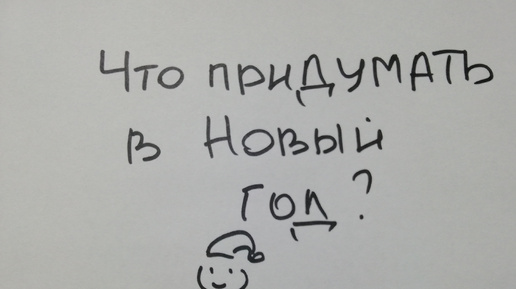 Что придумать
в Новый
год?